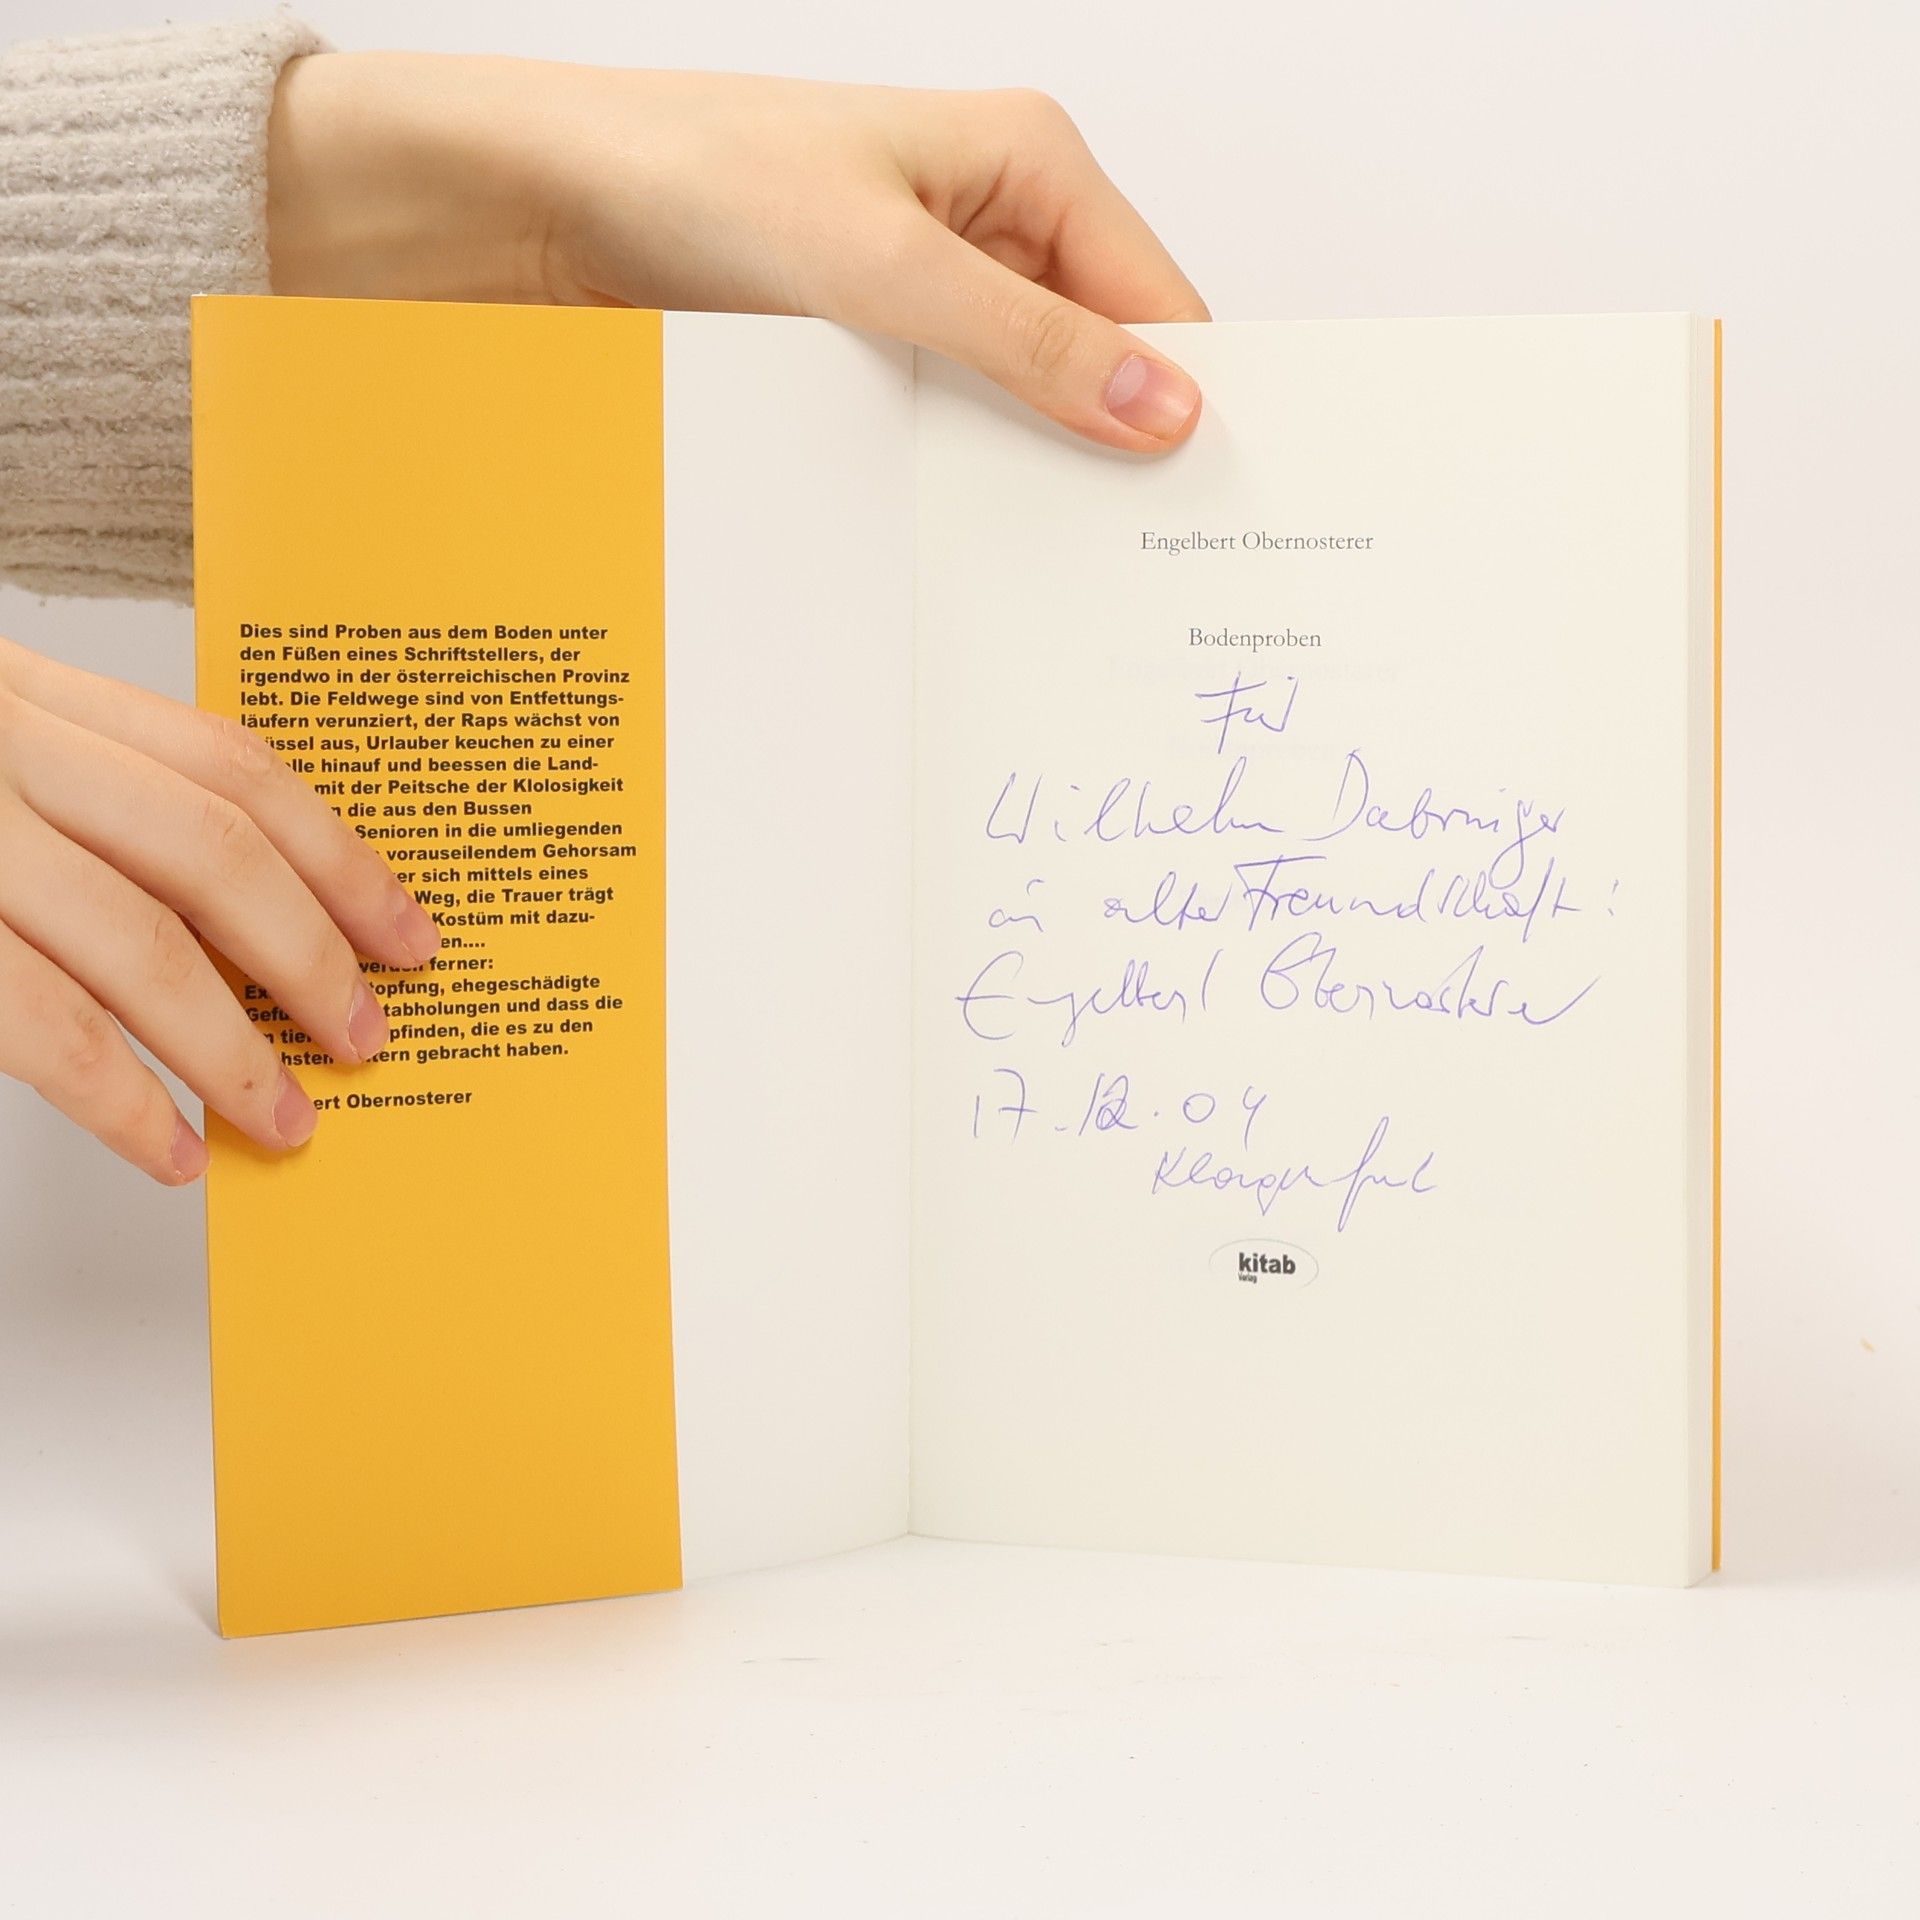 Dies sind Proben aus dem Boden unter
den Füßen eines Schriftstellers, der
irgendwo in der österreichischen Provinz
lebt. Die Feldwege sind von Entfettungs-
läufern verunziert, der Raps wächst von
üssel aus, Urlauber keuchen zu einer
lle hinauf und beessen die Land-
mit der Peitsche der Klolosigkeit
die aus den Bussen
Senioren in die umliegenden
vorauseilendem Gehorsam
er sich mittels eines
Weg, die Trauer trägt
Kostüm mit dazu-
en....
ferner:
topfung, ehegeschädigte
tabholungen und dass die
pfinden, die es zu den
hsten tern gebracht haben.
ert Obernosterer
Engelbert Obernosterer
Bodenproben
Für
Wilhelm Dabringer
in alter Freundschaft!
Engelbert Obernosterer
17.12.04
Klagenfurt
kitab
Verlag